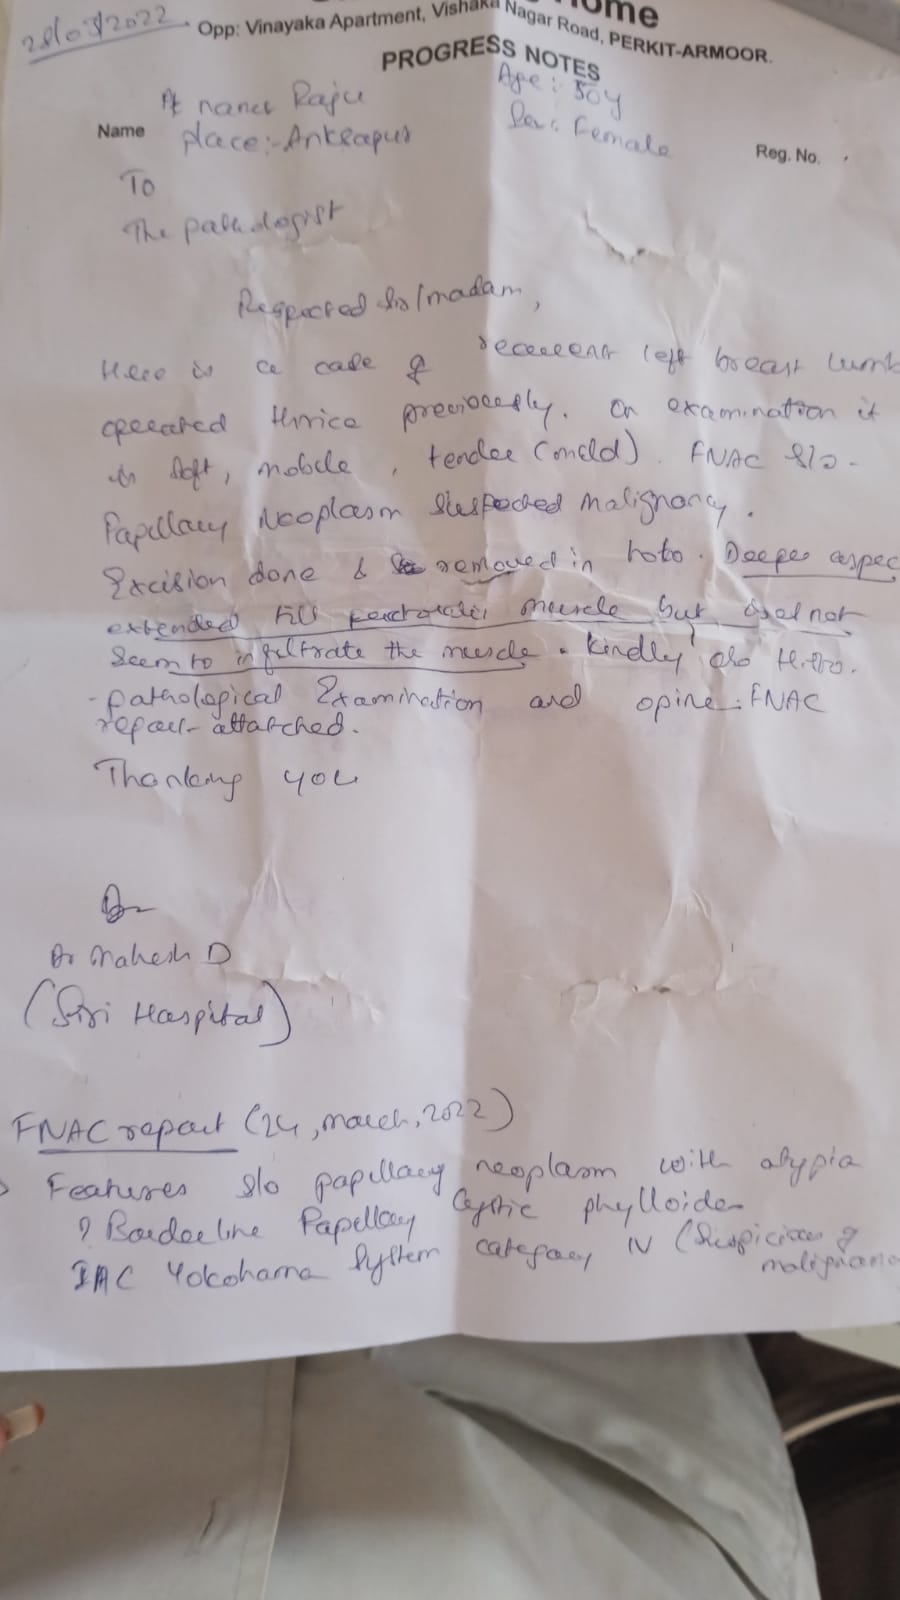 28/03/2022
Home
Opp: Vinayaka Apartment, Vishaka Nagar Road, PERKIT-ARMOOR.
PROGRESS NOTES
Pt name Raju Age: 50y
Name place:- Ankrapur Female Reg. No.
To
The pathologist
Respected Sir/madam,
Here is a case of left breast lumb
operated thrice previously. On examination it
is soft, mobile, tender (mild). FNAC s/o -
Papillary Neoplasm suspected malignancy.
Excision done & removed in toto. Deeper aspec
extended till muscle but does not
seem to infiltrate the muscle. Kindly do Histo.
- pathological Examination and opine. FNAC
report attatched.
Thanking you
Dr Mahesh D
(Siri Hospital)
FNAC report (24, march, 2022)
Features s/o papillary neoplasm with atypia
? Borderline Papillary Cystic phylloides
IAC Yokohama System category IV (Suspicious of
malignanc